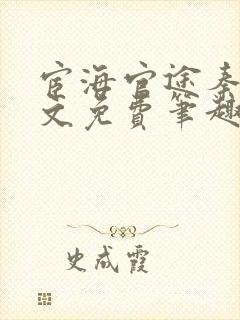 宦海官途秦
文免费笔趣
史成霞